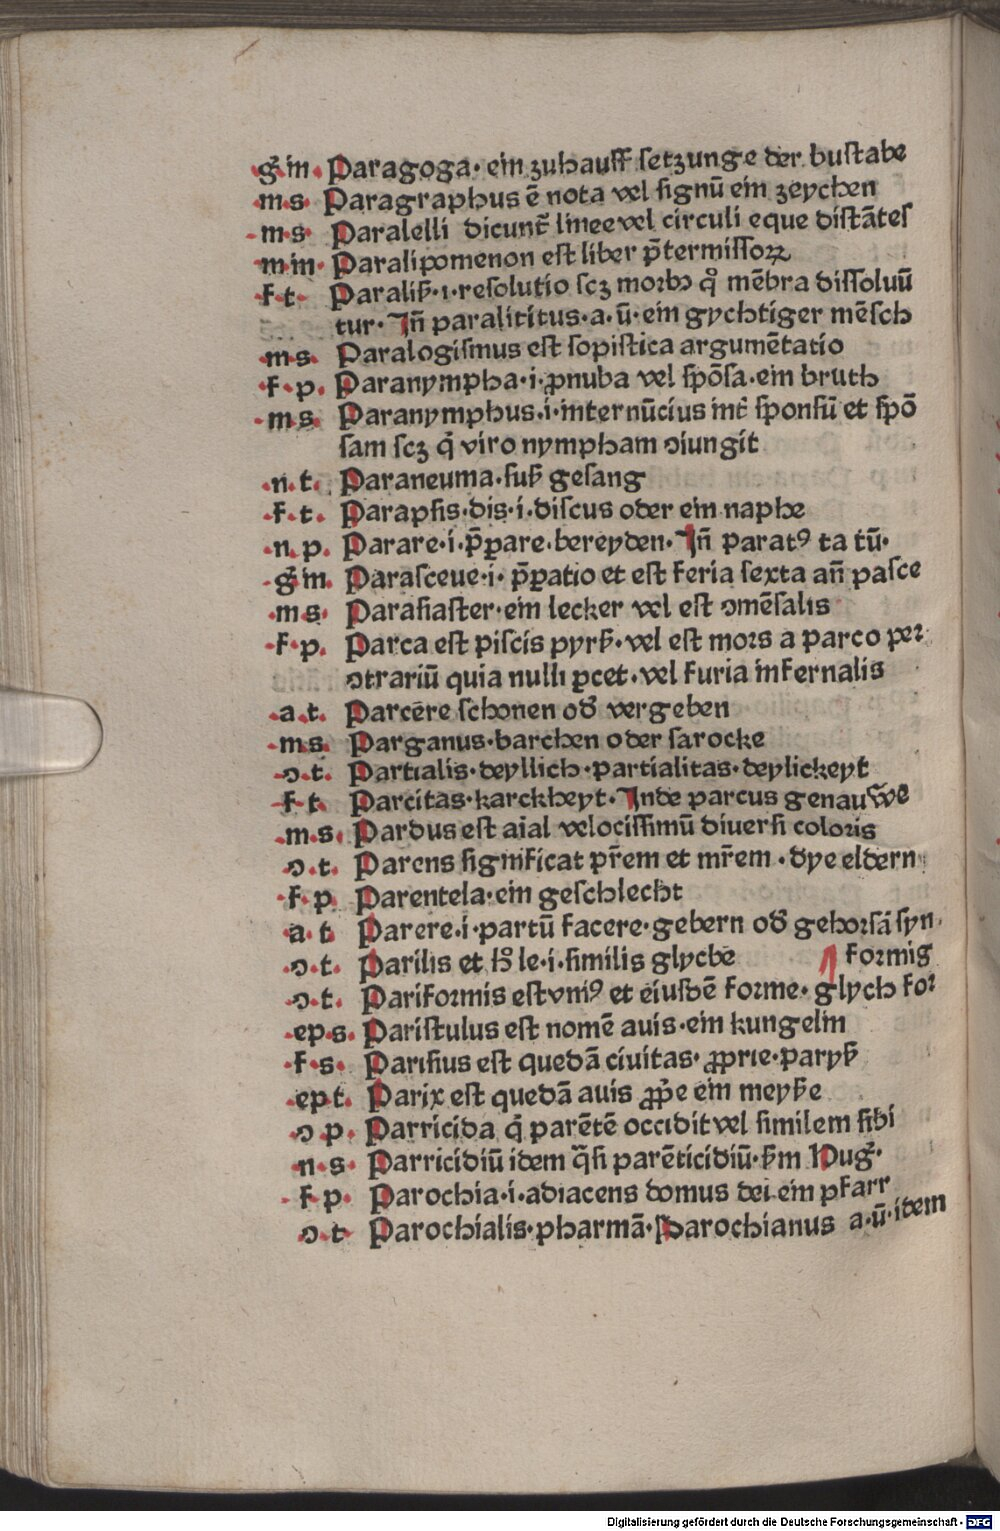 g̃ in. Paragoga· ein zuhauff setzunge der bustabe
m s· Paragraphus ē nota vel signū ein zeychen
m s· Paralelli dicunt̃ linee vel circuli eque distātes
m in· Paralipomenon est liber p̃termissoꝝ
f·t· Paraliß·i·resolutio scꝫ morbꝰ q̊ mēbra dissoluū
tur· Iñ paralititus·a·ū·ein gychtiger mēsch
m s· Paralogismus est sopistica argumētatio
f·p· Paranympha·i·ꝓnuba vel spōsa·ein bruth
m s· Paranymphus·i·internūcius int̃ sponsū et spō
sam scꝫ q̇ viro nympham ꝯiungit
n·t· Paraneuma·suß gesang
f·t· Parapsis·dis·i·discus oder ein naphe
n·p· Parare·i·p̃ꝑare·bereyden· Iñ paratꝰ ta tū·
g̃ in· Parasceue·i·p̃ꝑatio et est feria sexta añ pasce
m s· Parasiaster·ein lecker vel est ꝯmēsalis
f·p· Parca est piscis pyrß·vel est mors a parco per
ꝯtrariū quia nulli ꝑcet·vel furia infernalis
a·t· Parcēre schonen od̃ vergeben
m s· Parganus·barchen oder sarocke
ꝯ·t· Partialis·deyllich·partialitas·deylickeyt
f·t· Parcitas·karckheyt·Inde parcus genauwe
m·s· Pardus est aial velocissimū diuersi coloris
ꝯ·t· Parens significat pr̃em et mr̃em·dye eldern
f·p· Parentela·ein geschlecht
a·t· Parere·i·partū facere·gebern od̃ gehorsā syn·
ꝯ·t· Parilis et hͦ le·i·similis glyche ¶ formig
ꝯ·t· Pariformis est vniꝰ et eiusdē forme·glych for
ep·s· Paristulus est nomē auis·ein kungelin
f·s· Parisius est quedā ciuitas·ꝓprie·paryß
ep t· Parix est quedā auis ꝓp̃e ein meyße
ꝯ p· Parricida q̇ parētē occidit vel similem sibi
n·s· Parricidiū idem q̃si parēticidiū·ßm Hug̃·
f·p· Parochia·i·adiacens domus dei ein pfarr
ꝯ·t Parochialis·pharmā·Parochianus a·ū·idem
Digitalisierung gefördert durch die Deutsche Forschungsgemeinschaft - DFG